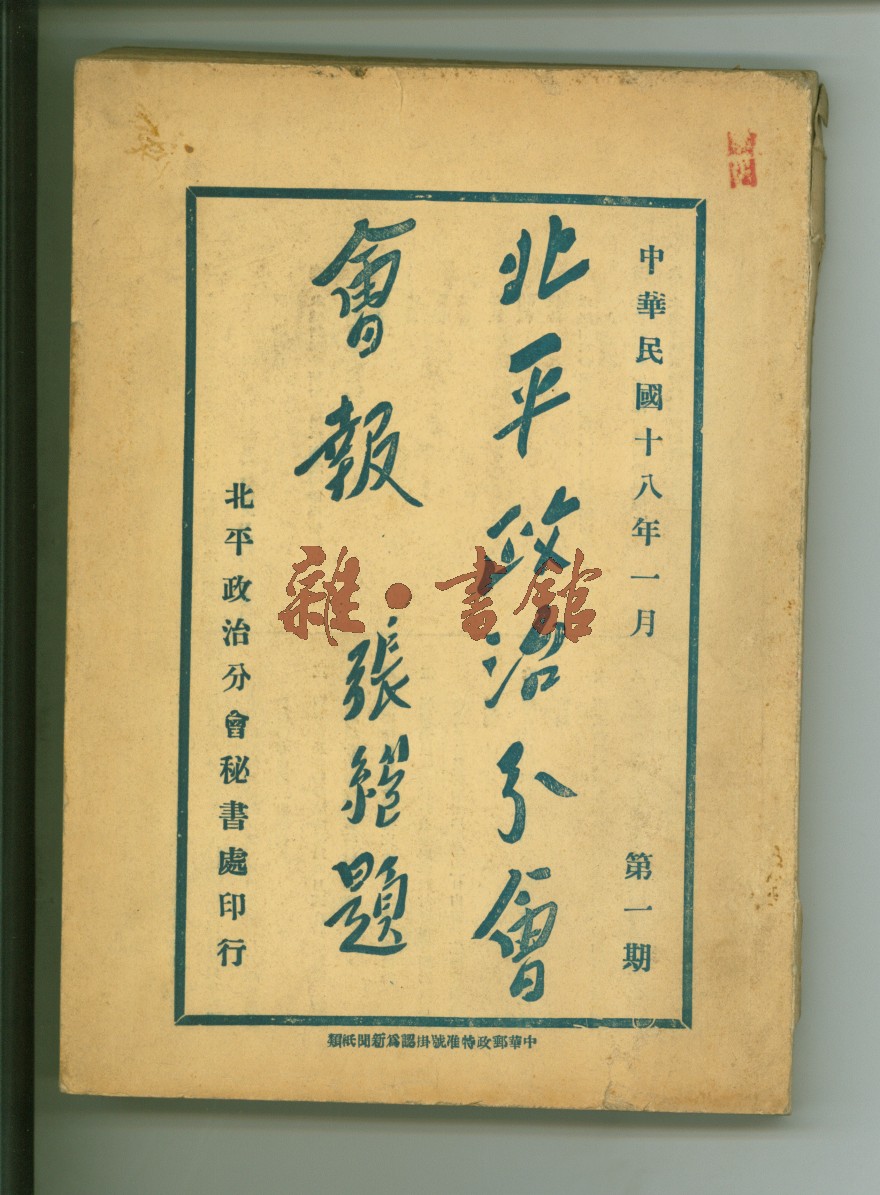 中華民國十八年一月　第一期
北平政治分會
會報　張繼題
北平政治分會秘書處印行
中華郵政特准號掛認爲新聞紙類
雜·書館